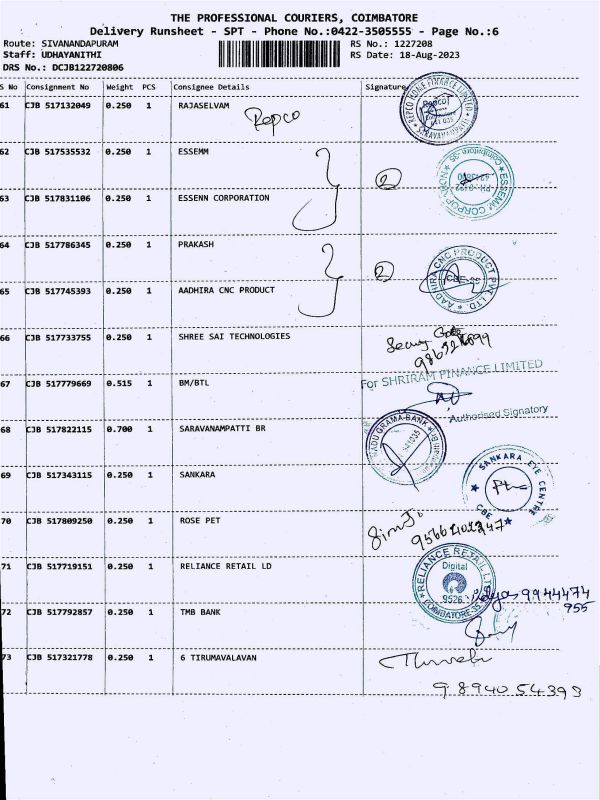 THE PROFESSIONAL COURIERS, COIMBATORE
Delivery Runsheet - SPT - Phone No.:0422-3505555 - Page No.:6
Route: SIVANANDAPURAM RS No.: 1227208
Staff: UDHAYANITHI RS Date: 18-Aug-2023
DRS No.: DCJB122720806
S No Consignment No Weight PCS Consignee Details Signature
61 CJB 517132049 0.250 1 RAJASELVAM
Repco
REPCO HOME FINANCE LIMITED
SARAVANAMPATTI
62 CJB 517535532 0.250 1 ESSEMM
2
ESSEMM CORPORATION
Coimbatore-35
63 CJB 517831106 0.250 1 ESSENN CORPORATION
64 CJB 517786345 0.250 1 PRAKASH
2
AADHIRA CNC PRODUCT PVT. LTD.
CBE-35
65 CJB 517745393 0.250 1 AADHIRA CNC PRODUCT
66 CJB 517733755 0.250 1 SHREE SAI TECHNOLOGIES
67 CJB 517779669 0.515 1 BM/BTL
For SHRIRAM FINANCE LIMITED
Authorised Signatory
68 CJB 517822115 0.700 1 SARAVANAMPATTI BR
GRAMA BANK
69 CJB 517343115 0.250 1 SANKARA
SANKARA EYE CENTRE
CBE
70 CJB 517809250 0.250 1 ROSE PET
71 CJB 517719151 0.250 1 RELIANCE RETAIL LD
RELIANCE RETAIL LTD
Digital
9526
COIMBATORE-35
9944474
955
72 CJB 517792857 0.250 1 TMB BANK
73 CJB 517321778 0.250 1 6 TIRUMAVALAVAN
9894054393